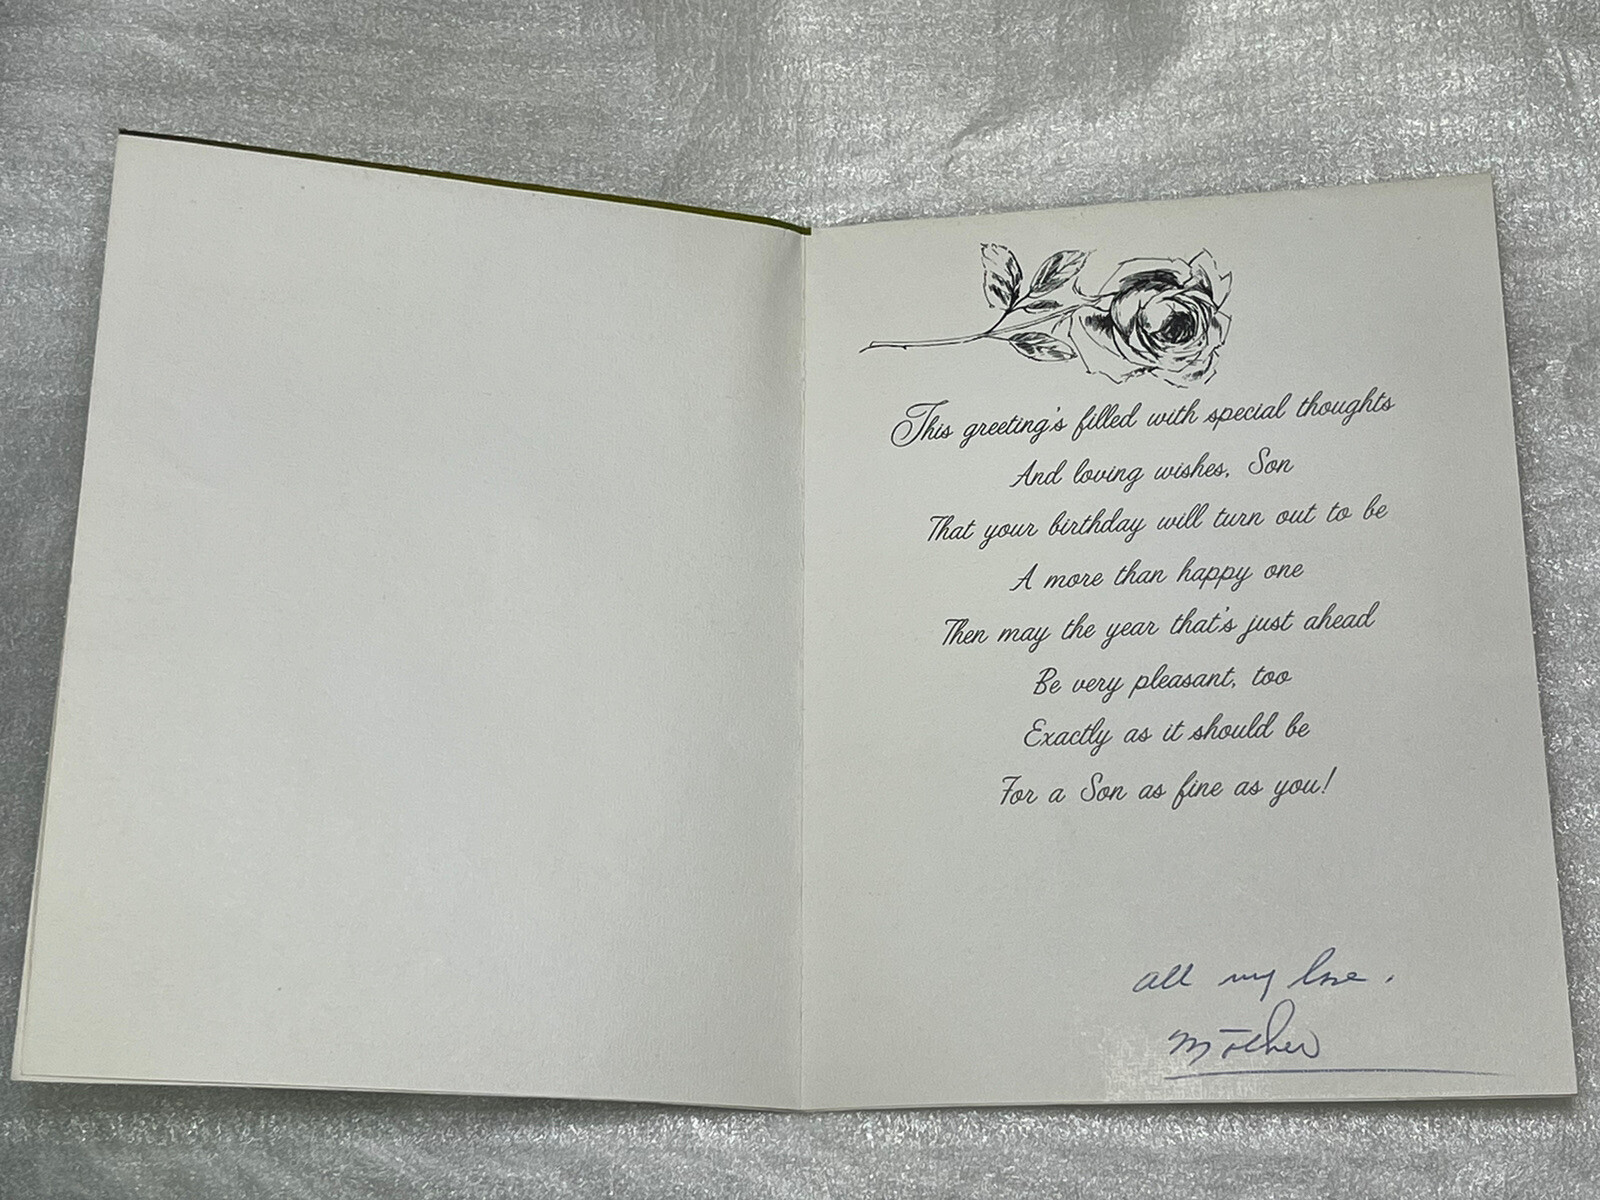 This greeting's filled with special thoughts
And loving wishes, Son
That your birthday will turn out to be
A more than happy one
Then may the year that's just ahead
Be very pleasant, too
Exactly as it should be
For a Son as fine as you!
all my love.
Mother